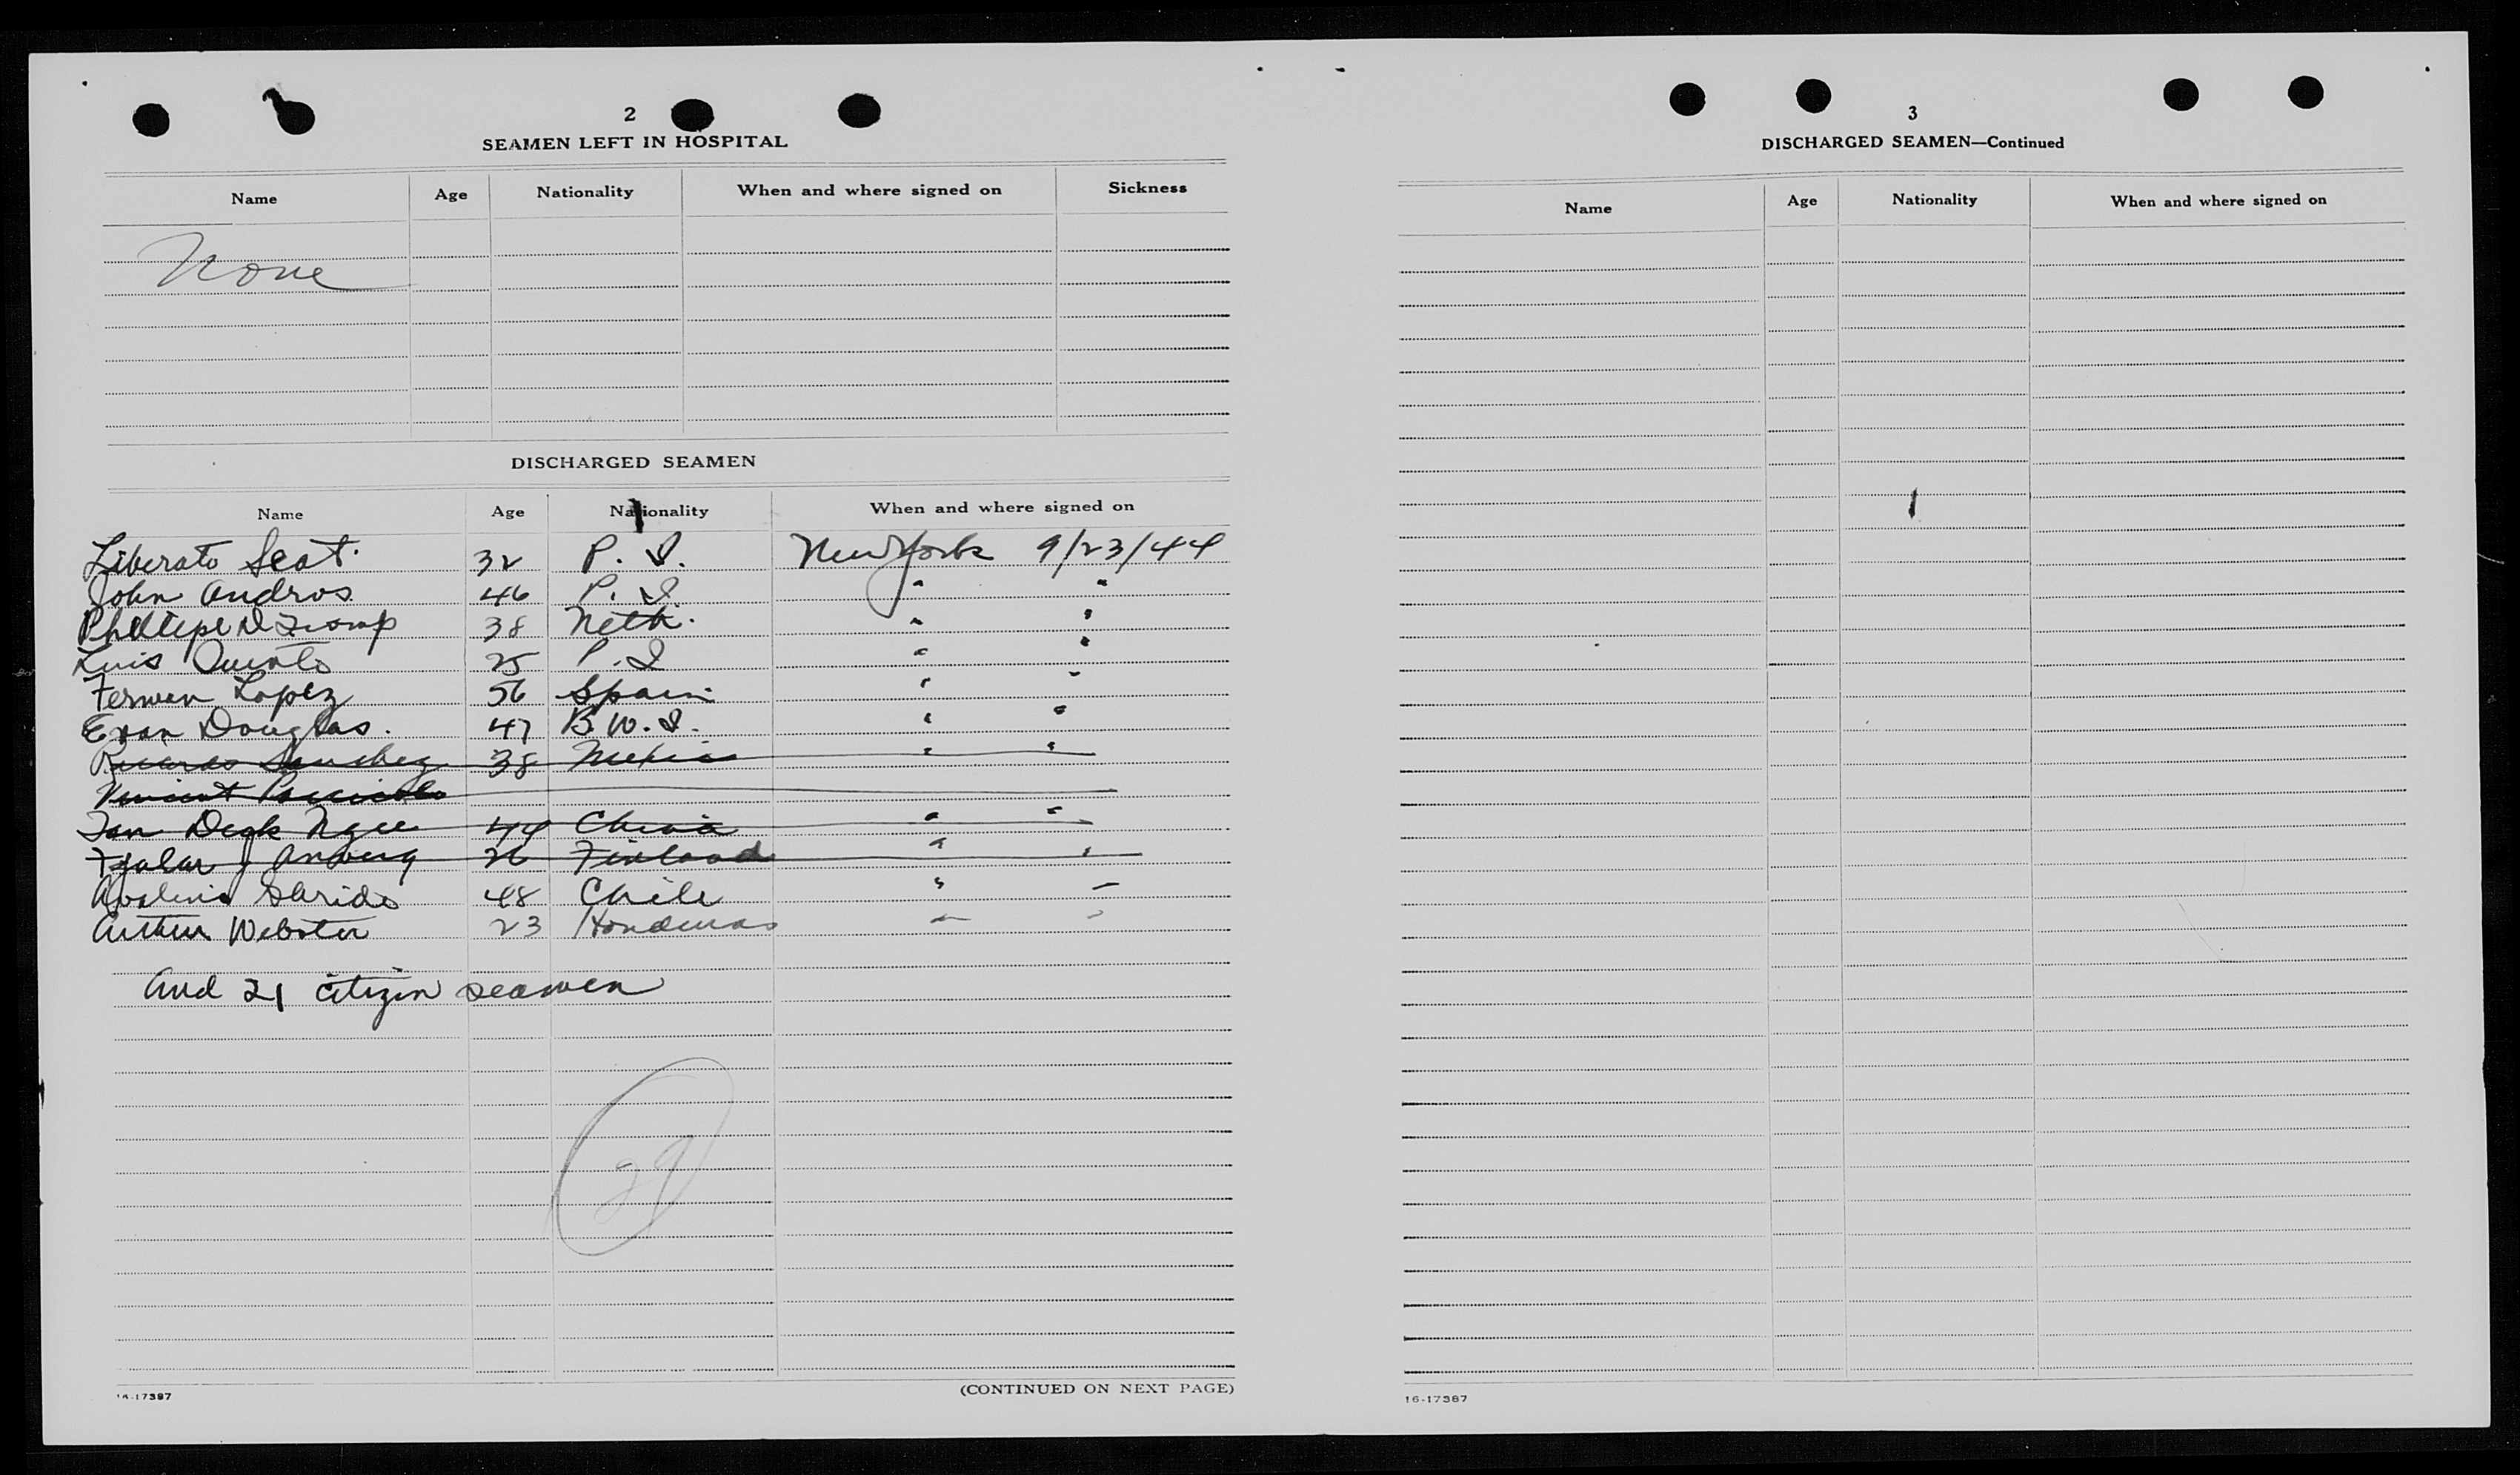 2
SEAMEN LEFT IN HOSPITAL
Name Age Nationality When and where signed on Sickness
None
DISCHARGED SEAMEN
Name Age Nationality When and where signed on
Liberato Seat. 32 P. I. New York 9/23/44
John Andros 46 P. I. " "
Phillipe D Tromp 38 Neth. " "
Luis Quinto 25 P. I " "
Fermen Lopez 56 Spain " "
Evan Douglas. 47 B.W.I. " "
Ricardo Sanchez 38 Mexico " "
Vincent
Tan Degk Ngee 44 China " "
26 Finland " "
Garido 48 Chile " "
Arthur Webster 23 Honduras " "
And 21 citizen seamen
29
16-17387
(CONTINUED ON NEXT PAGE)
3
DISCHARGED SEAMEN—Continued
Name Age Nationality When and where signed on
16-17387